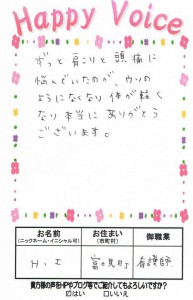 Happy Voice
ずっと肩こりと頭痛に
悩んでいたのが、ウソの
ようになくなり体が軽く
なり本当にありがとう
ございます。
お名前
(ニックネーム・イニシャル可)
お住まい
(市町村)
御職業
H・I
富士見町
看護師
貴方様の声をHPやブログ等でご紹介してもよろしいですか?
☑はい □いいえ